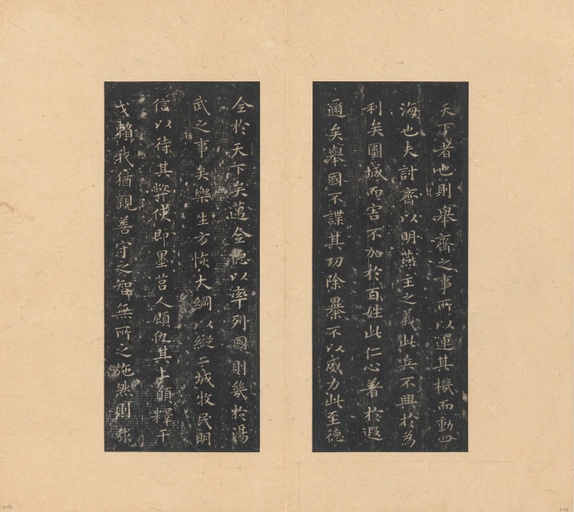 天下者也則舉齊之事所以運其機而動四
海也夫討齊以明燕主之義此兵不興於為
利矣圍城而害不加於百姓此仁心著於遐
邇矣舉國不謀其功除暴不以威力此至德
全於天下矣邁全德以率列國則幾於湯
武之事矣樂生方恢大綱以縱二城牧民明
信以待其弊使即墨莒人顧仇其上願釋干
戈賴我猶親善守之智無所之施然則求